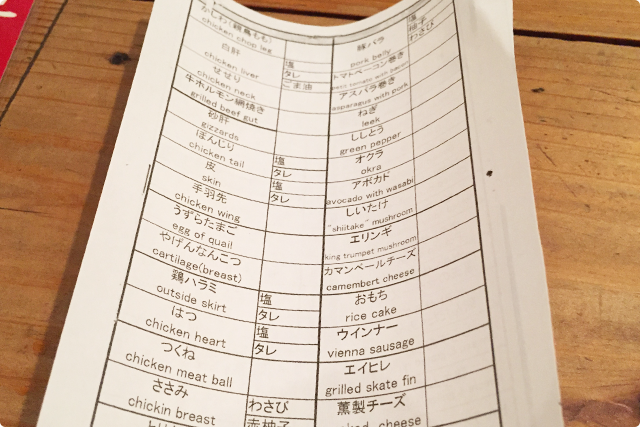 かしわ(親鳥もも)
chicken chop leg
白肝
chicken liver
塩
タレ
ごま油
せせり
chicken neck
牛ホルモン網焼き
grilled beef gut
砂肝
gizzards
ぼんじり
chicken tail
塩
タレ
皮
skin
塩
タレ
手羽先
chicken wing
うずらたまご
egg of quail
やげんなんこつ
cartilage(breast)
鶏ハラミ
outside skirt
塩
タレ
はつ
chicken heart
塩
タレ
つくね
chicken meat ball
ささみ
chickin breast
わさび
赤柚子
豚バラ
pork belly
塩
柚子
わさび
トマトベーコン巻き
petit tomato with bacon
アスパラ巻き
asparagus with pork
ねぎ
leek
ししとう
green pepper
オクラ
okra
アボカド
avocado with wasabi
しいたけ
"shiitake" mushroom
エリンギ
king trumpet mushroom
カマンベールチーズ
camembert cheese
おもち
rice cake
ウインナー
vienna sausage
エイヒレ
grilled skate fin
薫製チーズ
cheese